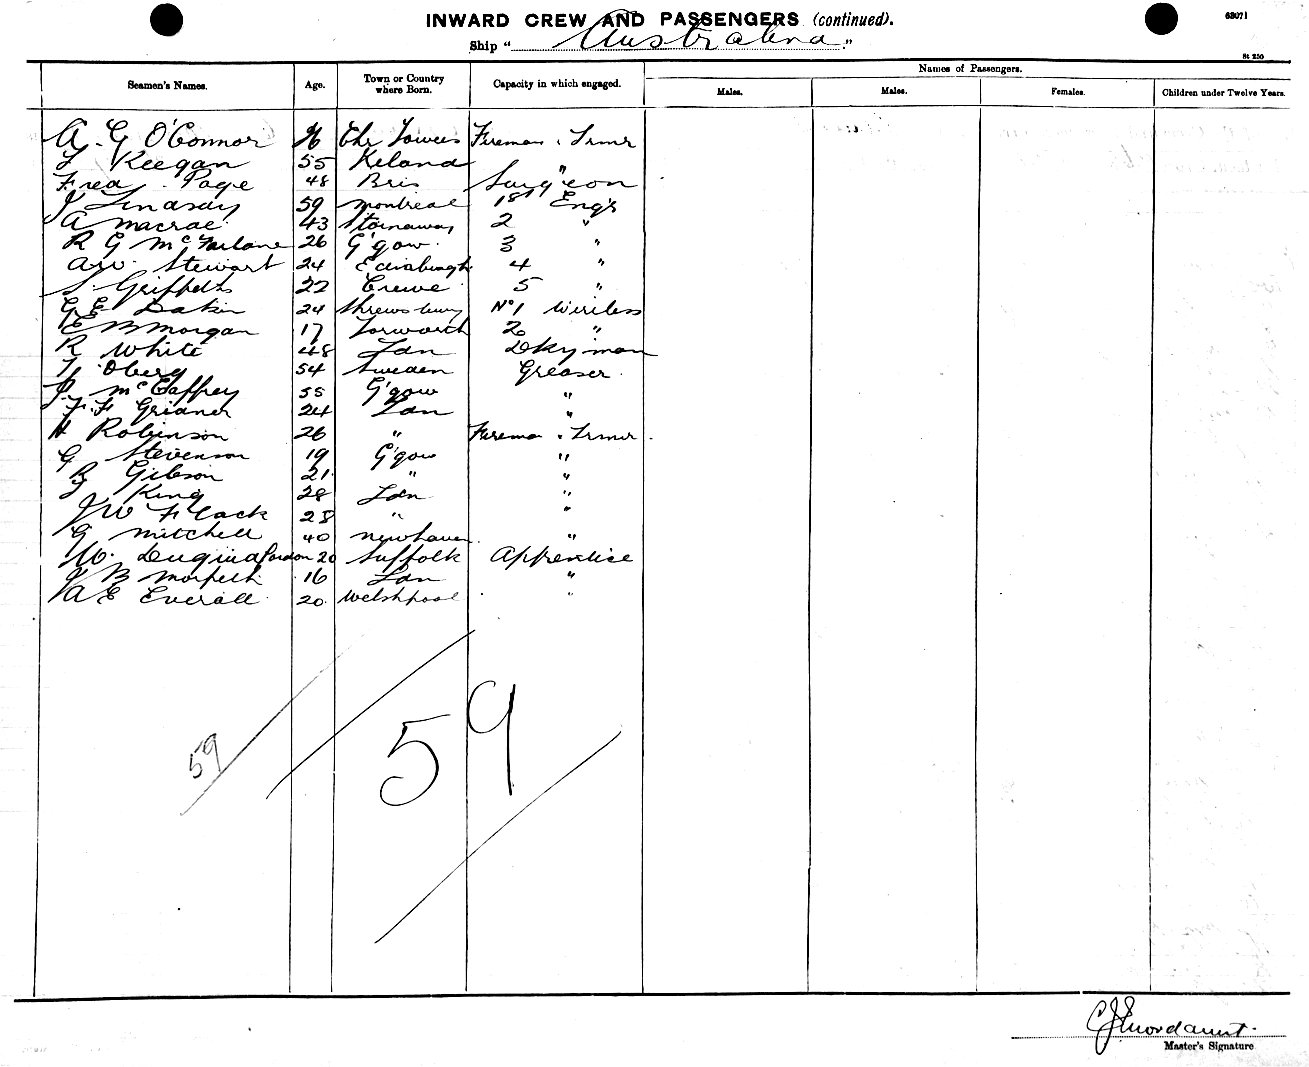 INWARD CREW AND PASSENGERS (continued).
63071
Ship "
St 250
Seamen's Names. Age. Town or Country where Born. Capacity in which engaged. Names of Passengers.
Males. Males. Females. Children under Twelve Years.
A. G O'Connor Fireman & Trmr
Keegan 55 "
Fred Page 48 Bris Surgeon
J Lindsay 59 Montreal 1st Engr
A Macrae 43 Stornaway 2 "
R G McFarlane 26 G'gow. 3 "
A W Stewart 24 Edinburgh 4 "
Griffiths 22 Crewe 5 "
G E Dakin 24 Shrewsbury No 1 Wireless
E B Morgan 17 2 "
R White 48 Ldn Dkyman
Oberg 54 Sweden Greaser.
J. McCaffrey 55 G'gow "
24 Ldn "
H Robinson 26 " Fireman & Trmr.
G Stevenson 19 G'gow "
Gibson 21 " "
King 28 Ldn "
J W Flack 28 " "
G Mitchell 40 Newhaven. "
W. Gordon 20 Suffolk Apprentice
J B Morpeth 16 Ldn "
A E Everall 20 Welshpool "
59
59
Master's Signature